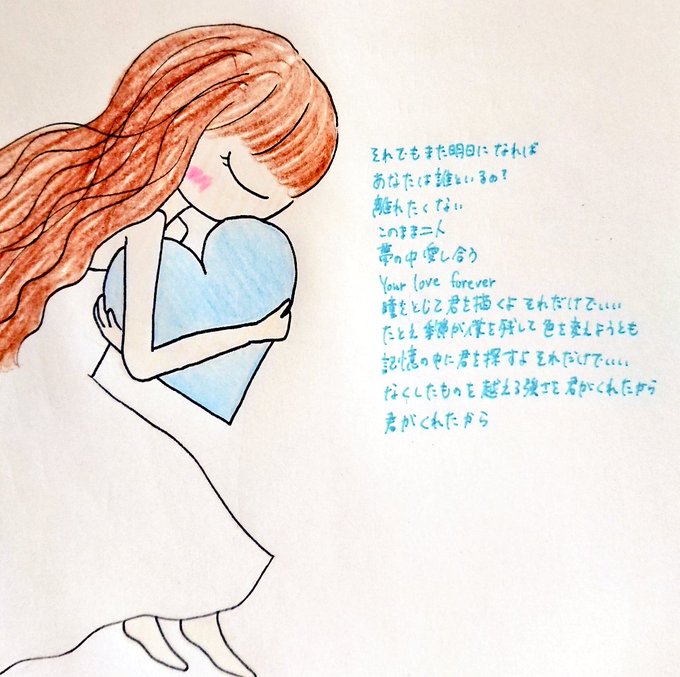 それでもまた明日になれば
あなたは誰といるの?
離れたくない
このまま二人
夢の中愛し合う
Your love forever
瞳をとじて君を描くよ それだけでいい
たとえ季節が僕を残して色を変えようとも
記憶の中に君を探すよ それだけでいい
なくしたものを越える強さを君がくれたから
君がくれたから